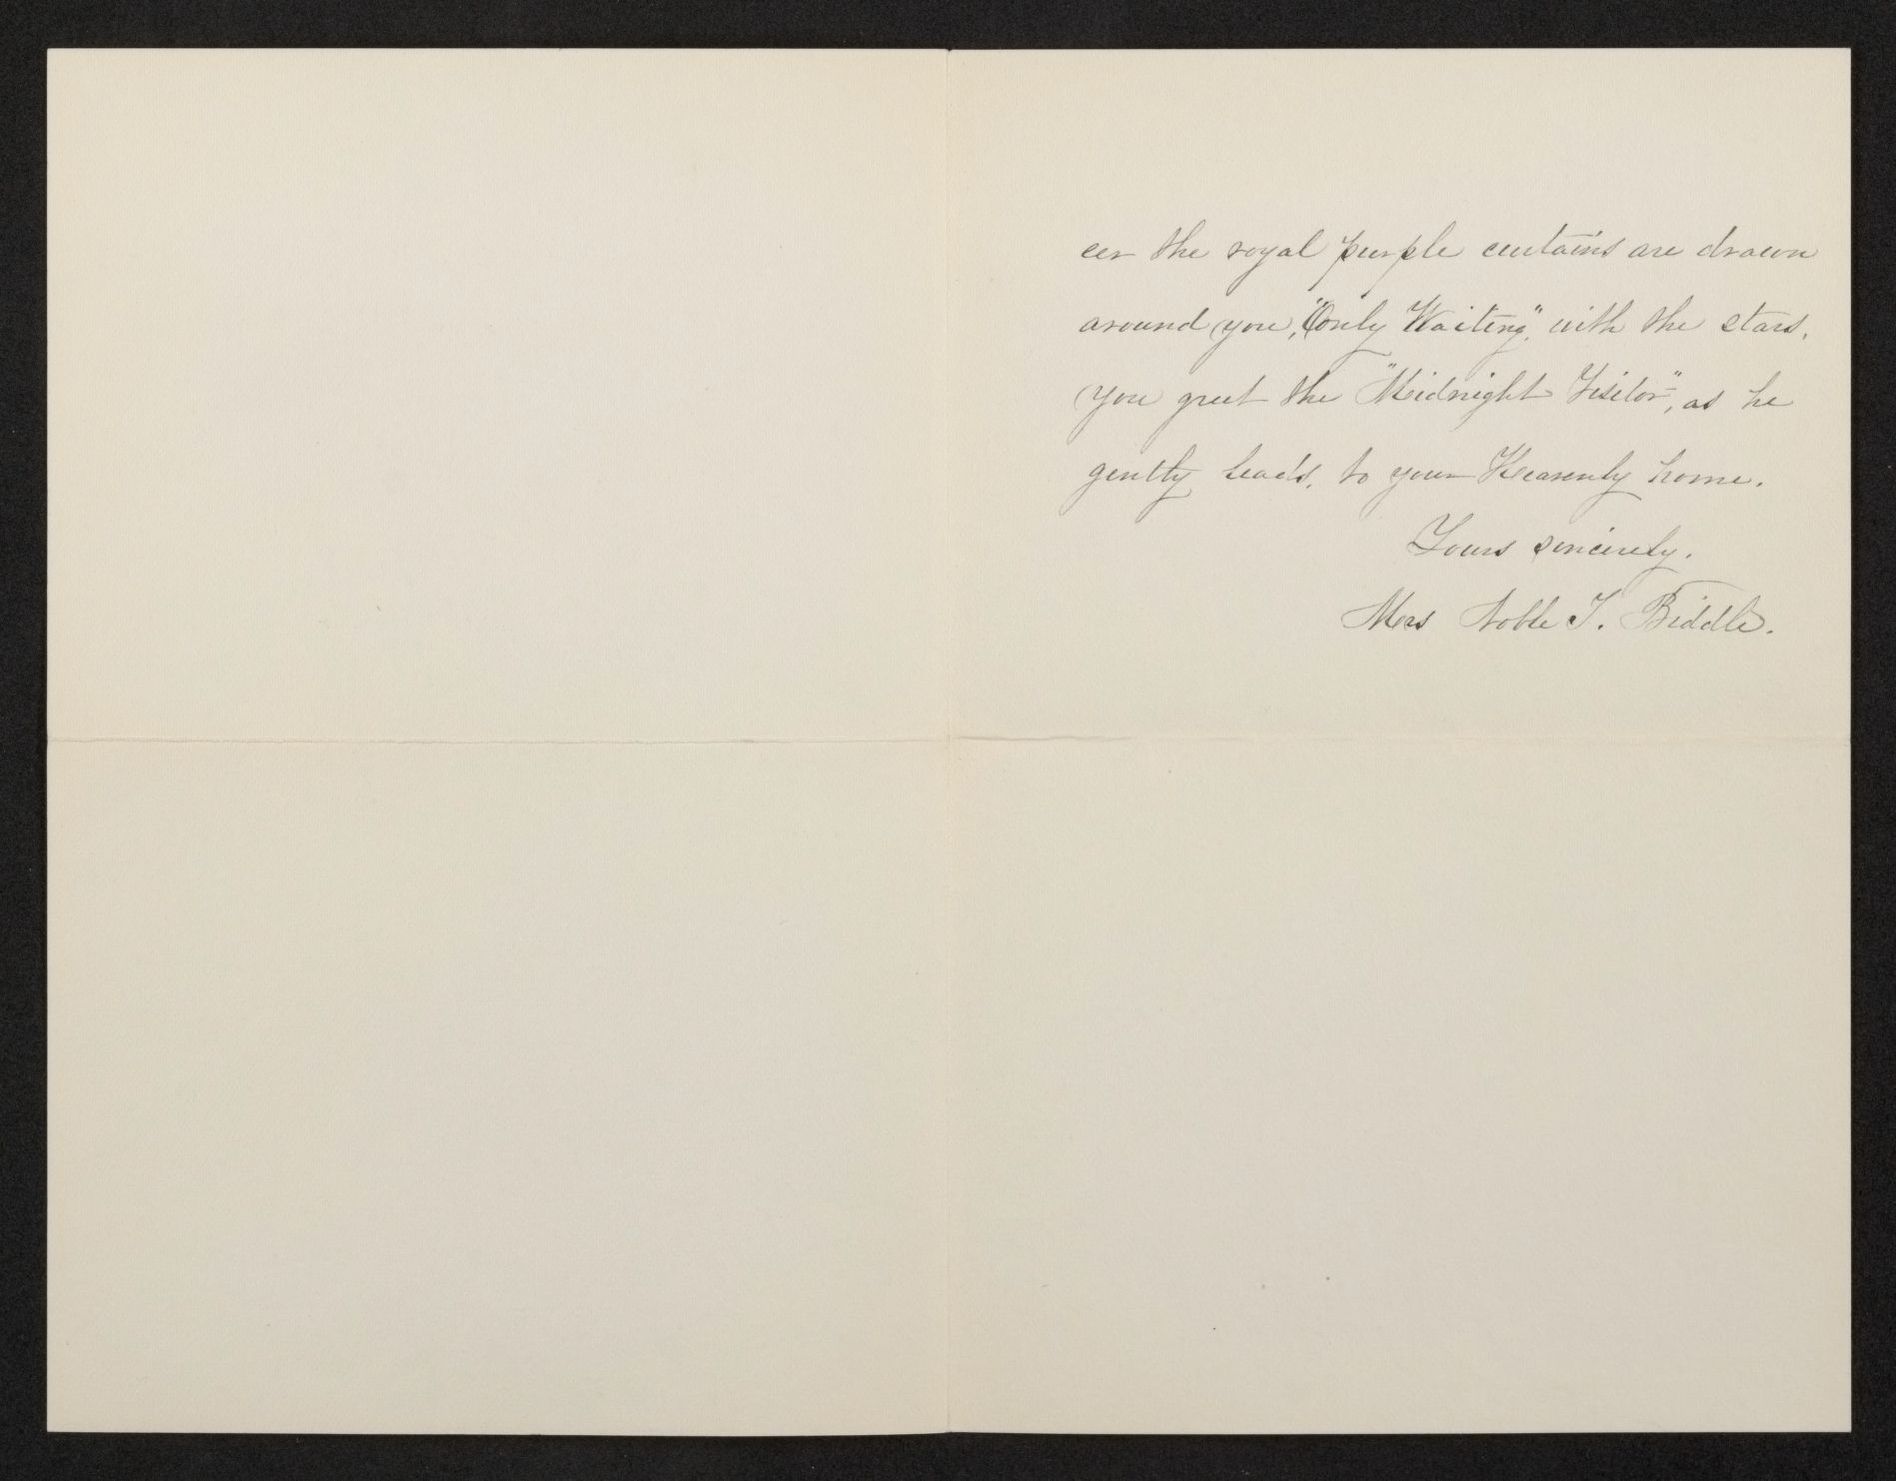 eer the royal purple curtains are drawn
around you, "Only Waiting", with the stars,
you greet the "Midnight Visitor", as he
gently leads, to your Heavenly home.
Yours sincerely,
Mrs Noble T. Biddle.